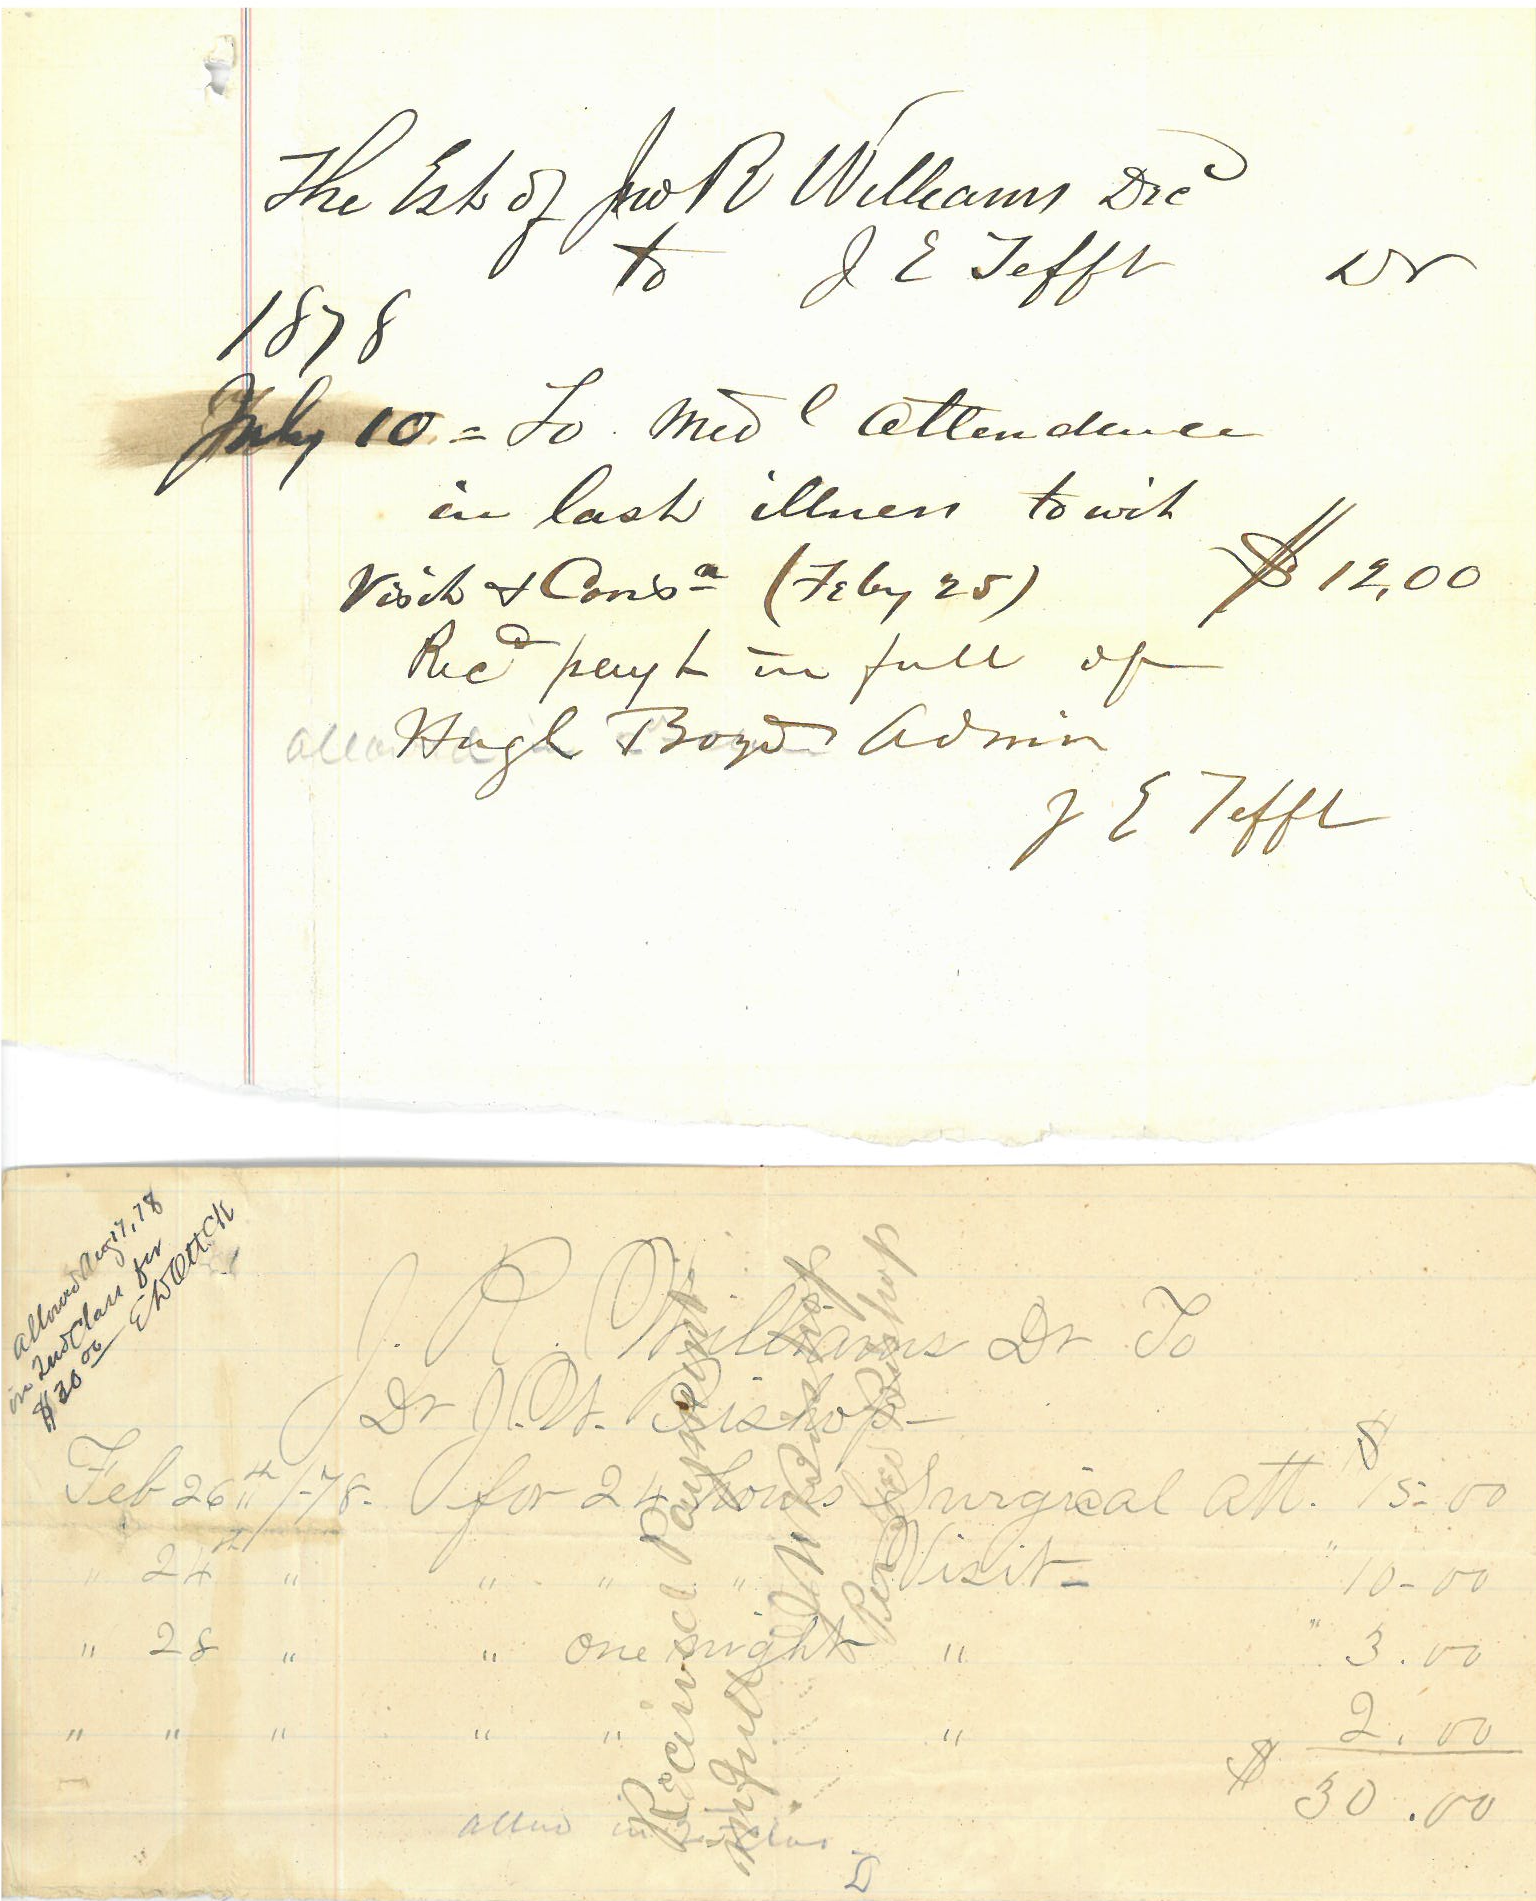 The Est of Jno R Williams Decd
to J E Tefft Dr
1878
July 10 = To Medl attendence
in last illness to wit
Visit & Consn (Feby 25) $12,00
Recd payt in full of
Hugh Boyd Admin
J E Tefft
allowed Aug 17, 78
in 2nd Class for
$30 00
J. R. Williams Dr To
Dr J. W. Bishop
Feb 26th /-78. for 24 hours Surgical Att. $15-00
" 24th " " " " Visit " 10-00
" 28 " " one night " " 3.00
" " " " " " 2.00
$ 30.00
Recived Payment
in full J W Bishop
Per Bishop
allow in class